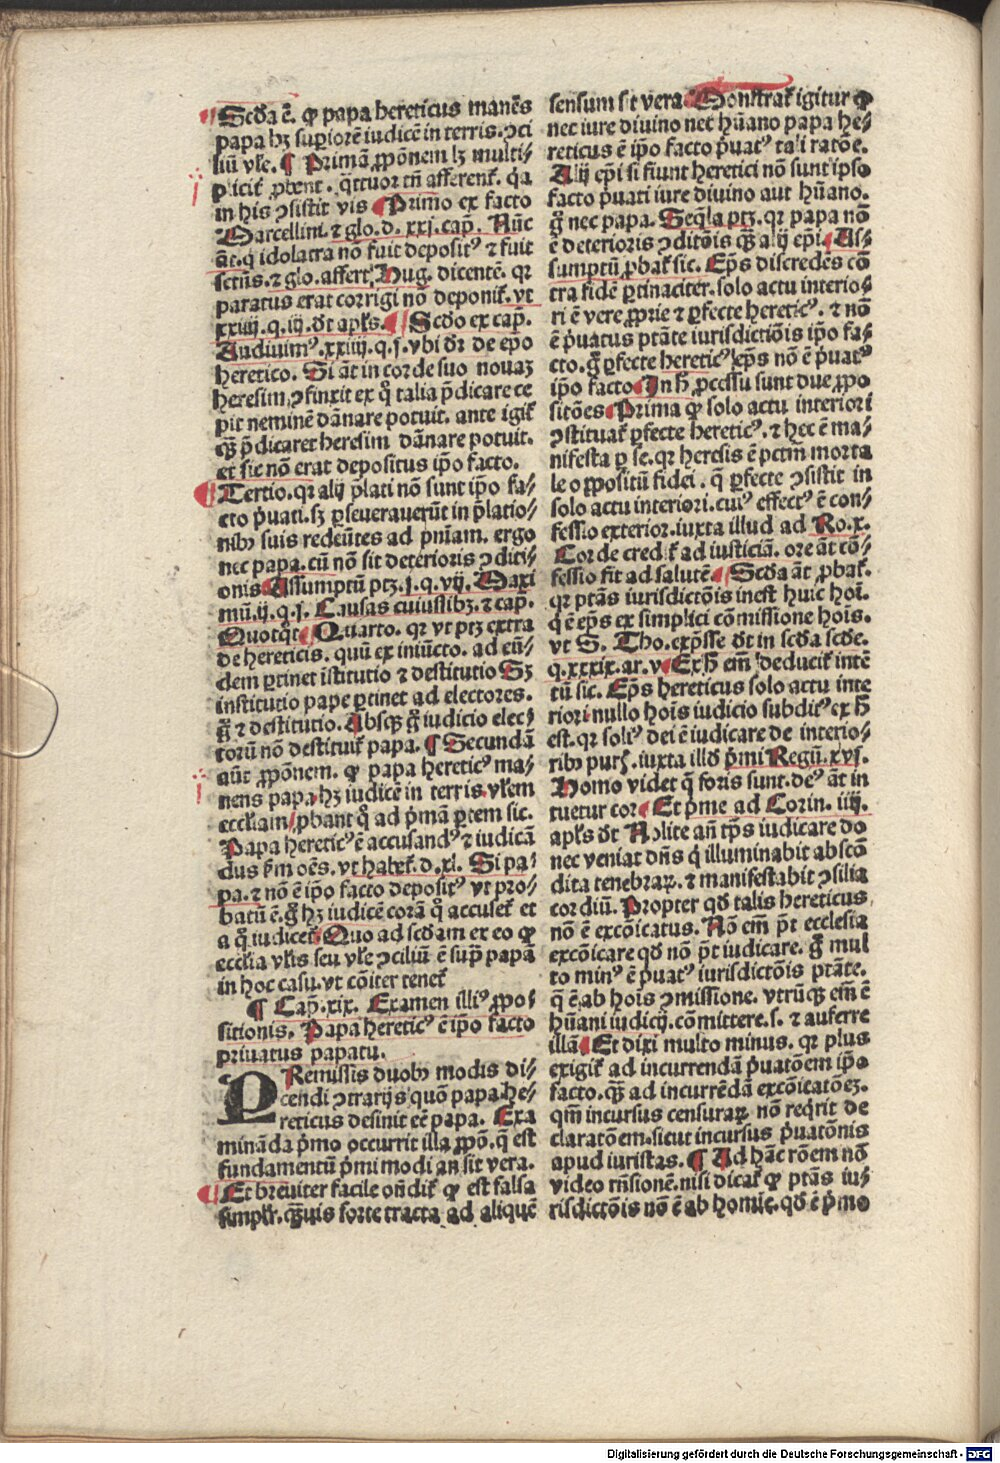 Scďa ē. ꝙ papa hereticus manēs
papa hꝫ superiorē iudicē in terris. ↄci
liū vľe. ¶ Primā ꝓpōnem lꝫ multi⸗
plicit̄ ꝓbent. q̄ttuor tn̄ afferenť. q̄a
in his ↄsistit vis ¶ Primo ex facto
Marcellini. ⁊ glo. d. xxj. cap̄. Nūc
āt. q idolatra nō fuit depositꝰ ⁊ fuit
sctūs. ⁊ glo. affert Hug. dicentē. qꝛ
paratus erat corrigi nō deponiť. vt
xxiiij. q. iij. ďt apľs. ¶ Scďo ex cap̄.
Audiuimꝰ. xxiiij. q. j. vbi ďꝛ de ep̄o
heretico. Si āt in corde suo nouaꝫ
heresim ↄfinxit ex q̊ talia p̄dicare ce
pit neminē dānare potuit. ante igiť
qꝫ p̄dicaret heresim dānare potuit.
et sic nō erat depositus ip̄o facto.
¶ Tertio. qꝛ alij p̄lati nō sunt ip̄o fa⸗
cto p̍uati. sꝫ ꝑseuerauerūt in p̄latio⸗
nibꝰ suis redeūtes ad pn̄iam. ergo
nec papa. cū nō sit deterioris ↄditi⸗
onis ¶ Assumptū ptꝫ. j. q. vij. Maxi
mū. ij. q. j. Causas cuiuslibꝫ. ⁊ cap̄.
Quotq̄t ¶ Quarto. qꝛ vt ptꝫ extra
de hereticis. quū ex iniūcto. ad eū⸗
dem ꝑtinet īstitutio ⁊ destitutio Sꝫ
institutio pape ꝑtinet ad electores.
g̊ ⁊ destitutio. Absqꝫ g̊ iudicio elec⸗
torū nō destituiť papa. ¶ Secundā
aūt ꝓpōnem. ꝙ papa hereticꝰ ma⸗
nens papa hꝫ iudicē in terris vľem
eccľiam ꝓbant q̊ ad p̍mā ꝑtem sic.
Papa hereticꝰ ē accusandꝰ ⁊ iudicā
dus ẜm oēs. vt habeť. d. xl. Si pa⸗
pa. ⁊ nō ē ip̄o facto depositꝰ vt pro⸗
batū ē. g̊ hꝫ iudicē corā q̊ accuseť et
a q̊ iudiceť ¶ Quo ad scďam ex eo ꝙ
eccľia vľis seu vľe ↄciliū ē sup̄ papā
in hoc casu. vt cōiter teneť
¶ Cap̄. xix. Examen illiꝰ ꝓpo⸗
sitionis. Papa hereticꝰ ē ip̄o facto
priuatus papatu.
PRemissis duobꝰ modis di⸗
cendi ↄtrarijs quō papa he⸗
reticus desinit eē papa. Exa
mināda p̍mo occurrit illa ꝓpō. q̄ est
fundamentū p̍mi modi an sit vera.
¶ Et breuiter facile on̄diť ꝙ est falsa
simplr̄. qꝫuis forte tracta ad aliquē
sensum sit vera ¶ Monstrať igitur ꝙ
nec iure diuino nec hūano papa he⸗
reticus ē ip̄o facto p̍uatꝰ tali ratōe.
Alij ep̄i si fiunt heretici nō sunt ipso
facto p̍uati iure diuino aut hūano.
g̊ nec papa. Seq̄la ptꝫ. qꝛ papa nō
ē deterioris ↄditōis qꝫ alij ep̄i. ¶ As⸗
sumptū ꝓbať sic. Ep̄s discredēs cō
tra fidē ꝑtinaciter. solo actu interio⸗
ri ē vere ꝓprie ⁊ ꝑfecte hereticꝰ. ⁊ nō
ē p̍uatus ptāte iurisdictiōis ip̄o fa⸗
cto. g̊ ꝑfecte hereticꝰ ep̄s nō ē p̍uatꝰ
ip̄o facto ¶ In h̊ ꝓcessu sunt due ꝓpo
sitōes ¶ Prima ꝙ solo actu interiori
ↄstituať ꝑfecte hereticꝰ. ⁊ hec ē ma⸗
nifesta ꝑ se. qꝛ heresis ē pctm̄ morta
le oppositū fidei. q̄ ꝑfecte ↄsistit in
solo actu interiori. cuiꝰ effectꝰ ē con⸗
fessio exterior. iuxta illud ad Ro. x.
Corde crediť ad iusticiā. ore āt cō⸗
fessio fit ad salutē. ¶ Scďa āt ꝓbať.
qꝛ ptās iurisdictōis inest huic hoī.
q̊ ē ep̄s ex simplici cōmissione hoīs.
vt S. Tho. exp̄sse ďt in scďa scďe.
q. xxxix. ar. v ¶ Ex h̊ em̄ deduciť intē
tū sic. Ep̄s hereticus solo actu inte
riori nullo hoīs iudicio subditꝰ ex h̊
est. qꝛ soliꝰ dei ē iudicare de interio⸗
ribꝰ puris. iuxta illď p̍mi Regū. xvj.
Homo videt q̄ foris sunt. deꝰ āt in
tuetur cor ¶ Et p̍me ad Corin. iiij.
apľs ďt Nolite an̄ tp̄s iudicare do
nec veniat dn̄s q̍ illuminabit abscō
dita tenebraꝝ. ⁊ manifestabit ↄsilia
cordiū. Propter qď talis hereticus
nō ē excōicatus. Nō em̄ p̄t ecclesia
excōicare qď nō p̄t iudicare. g̊ mul
to minꝰ ē p̍uatꝰ iurisdictōis ptāte.
q̄ ē ab hoīs ↄmissione. vtrūqꝫ em̄ ē
hūani iudicij. cōmittere. s. ⁊ auferre
illā ¶ Et dixi multo minus. qꝛ plus
exigiť ad incurrendā p̍uatōem ip̄o
facto. qꝫ ad incurrēdā excōicatōeꝫ.
qm̄ incursus censuraꝝ nō reqͥrit de
claratōem. sicut incursus p̍uatōnis
apud iuristas. ¶ Ad hāc rōem nō
video rn̄sionē. nisi dicať ꝙ ptās iu⸗
risdictōis nō ē ab homīe. qď ē p̍mo
Digitalisierung gefördert durch die Deutsche Forschungsgemeinschaft - DFG